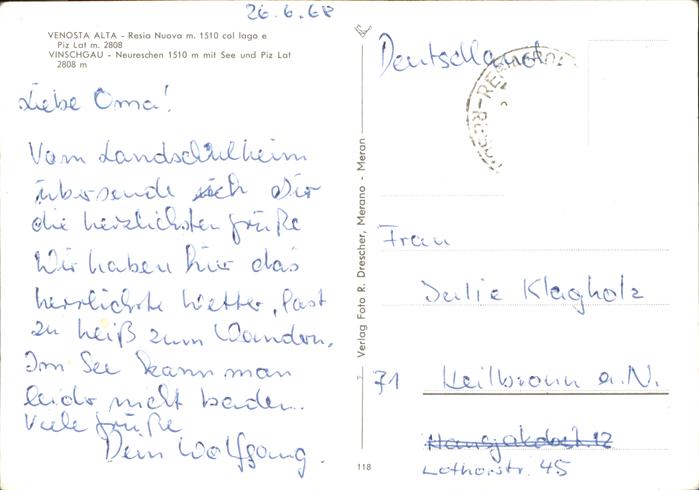 26.6.68
VENOSTA ALTA - Resia Nuova m. 1510 col lago e
Piz Lat m. 2808
VINSCHGAU - Neureschen 1510 m mit See und Piz Lat
2808 m
Liebe Oma!
Vom Landschulheim
übersende ich Dir
die herzlichsten Grüße
Wir haben hier das
herrlichste Wetter, fast
zu heiß zum Wandern.
Im See kann man
leider nicht baden.
Viele Grüße
Dein Wolfgang.
Verlag Foto R. Drescher, Merano - Meran
118
Deutschland.
Frau
Julie Klagholz
71 Heilbronn a.N.
Hansjakobstr. 12
Lothorstr. 45